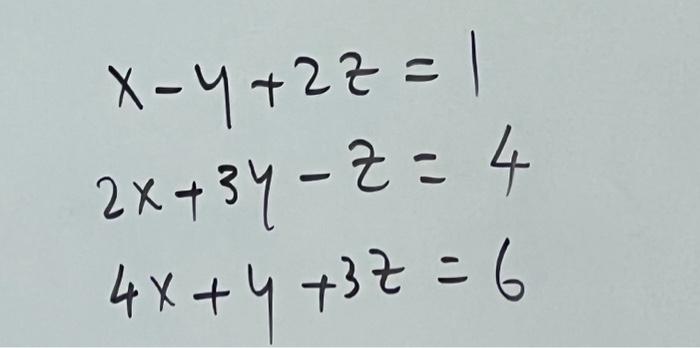 x - y + 2z = 1
2x + 3y - z = 4
4x + y + 3z = 6